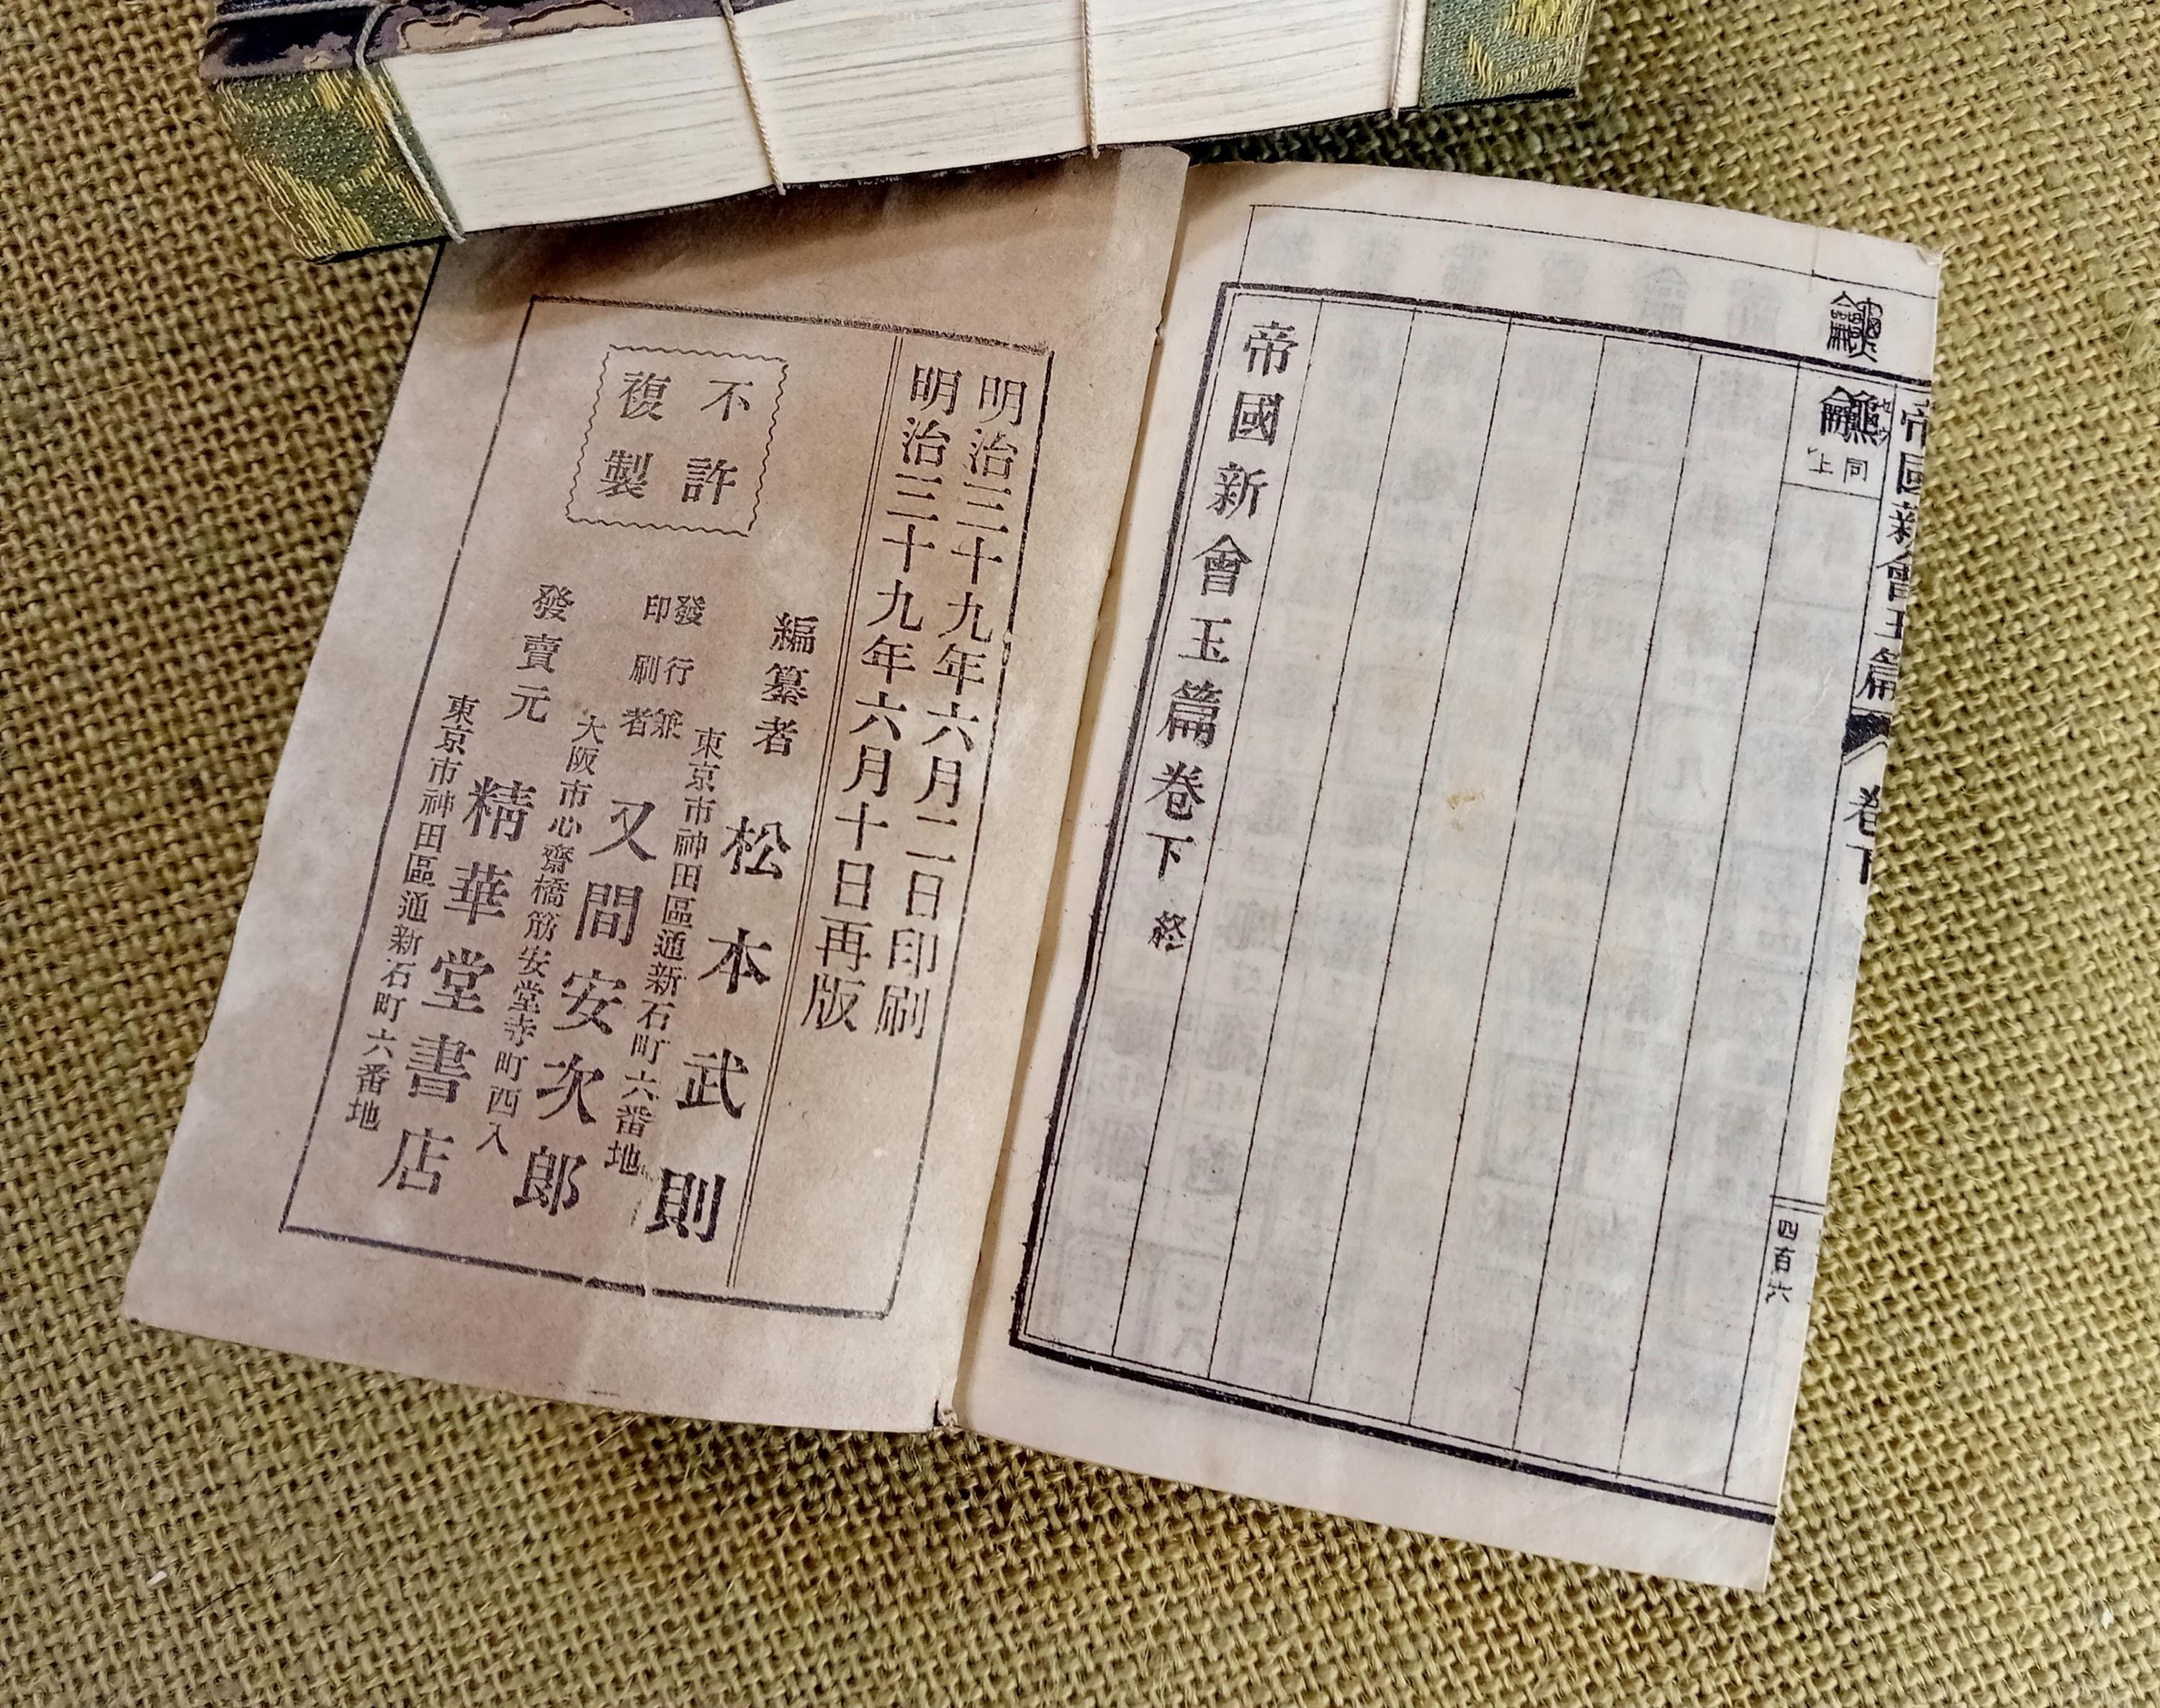 龢
龢
同上
帝國新會玉篇
卷下
四百六
帝國新會玉篇卷下 終
明治三十九年六月二日印刷
明治三十九年六月十日再版
不許
複製
編纂者 松本武則
東京市神田區通新石町六番地
發行兼
印刷者
又間安次郎
大阪市心齋橋筋安堂寺町西入
發賣元 精華堂書店
東京市神田區通新石町六番地